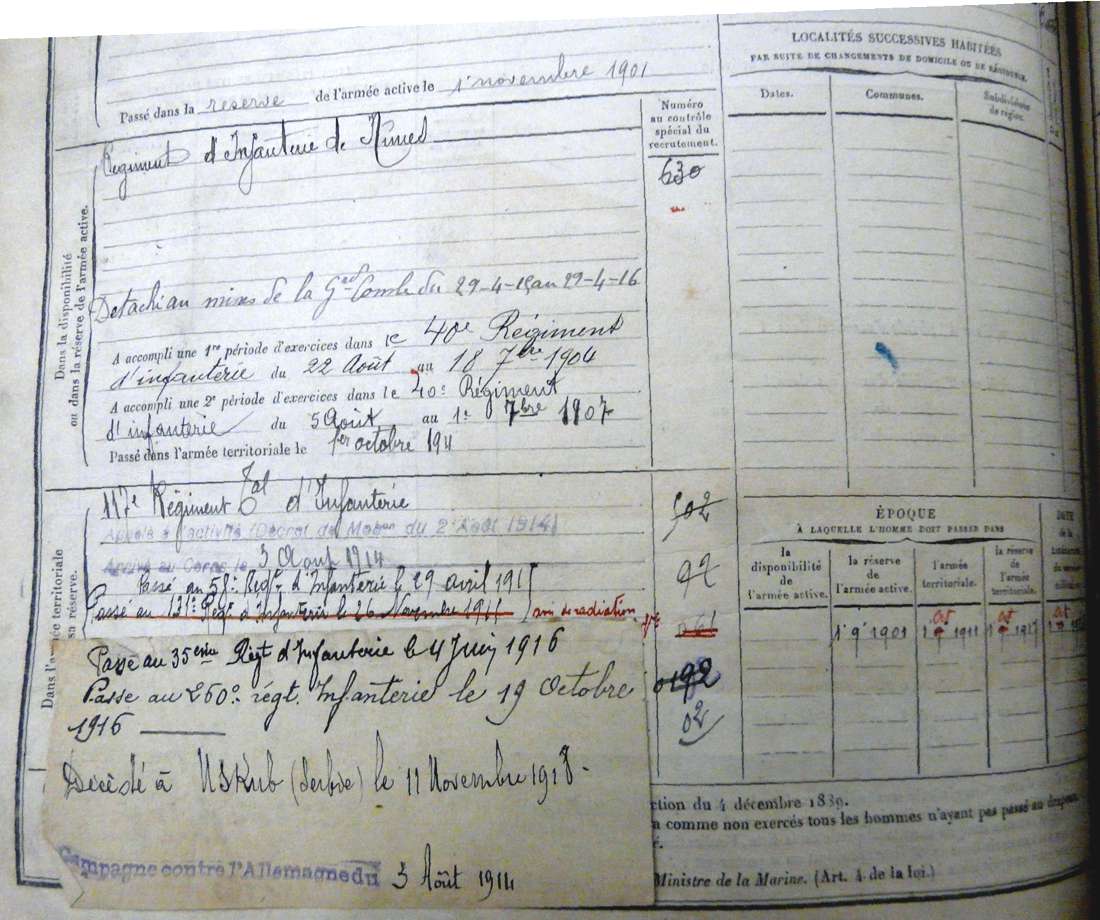 Passé dans la reserve de l'armée active le 1er novembre 1901
Numéro
au contrôle
spécial du
recrutement.
Régiment d'Infanterie de Nîmes
630
Dans la disponibilité
ou dans la réserve de l'armée active.
Détaché au mines de la Gd Combe du 29-4-15 au 29-4-16
A accompli une 1re période d'exercices dans le 40e Régiment
d'infanterie du 22 Août au 18 7bre 1904
A accompli une 2e période d'exercices dans le 40e Régiment
d'infanterie du 5 Août au 1er 7bre 1907
Passé dans l'armée territoriale le 1er octobre 1911
Dans l'armée territoriale
sa réserve.
117e Régiment Tal d'Infanterie
Appelé à l'activité (Décret de Mobon du 2 Août 1914)
Arrivé au Corps le 3 Aout 1914
Passé au 58e Regt d'Infanterie le 29 avril 1915
Passé au 121e Regt d'Infanterie le 26 Novembre 1915
radiation
Passé au 35eme Régt d'Infanterie le 4 Juin 1916
Passé au 260e régt. Infanterie le 19 Octobre
1916
Décédé à Uskub (Serbie) le 11 Novembre 1918.
Campagne contre l'Allemagne du 3 Août 1914
LOCALITÉS SUCCESSIVES HABITÉES
PAR SUITE DE CHANGEMENTS DE DOMICILE OU DE RÉSIDENCE.
Dates. Communes. Subdivisions
de région.
ÉPOQUE
À LAQUELLE L'HOMME DOIT PASSER DANS
la
disponibilité
de
l'armée active.
la réserve
de
l'armée active.
l'armée
territoriale.
la réserve
de
l'armée
territoriale.
DATE
de la
1 9 1901 1 oct 1911 1 oct 1917
ction du 4 décembre 1889.
comme non exercés tous les hommes n'ayant pas passé au drapeau
Ministre de la Marine. (Art. 4 de la loi.)